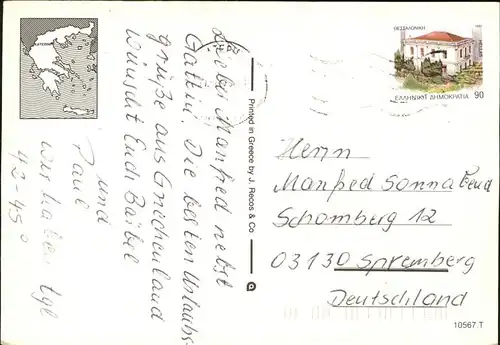 Lieber Manfred nebst
Gattin! Die besten Urlaubs-
grüße aus Griechenland
wünscht Euch Bärbel
und
Paul
wir haben tgl
42-45°
Printed in Greece by J. Recos & Co
ΘΕΣΣΑΛΟΝΙΚΗ
ΕΛΛΗΝΙΚΗ ΔΗΜΟΚΡΑΤΙΑ 90
Herrn
Manfred
Schomberg 12
03130 Spremberg
Deutschland
10567.T